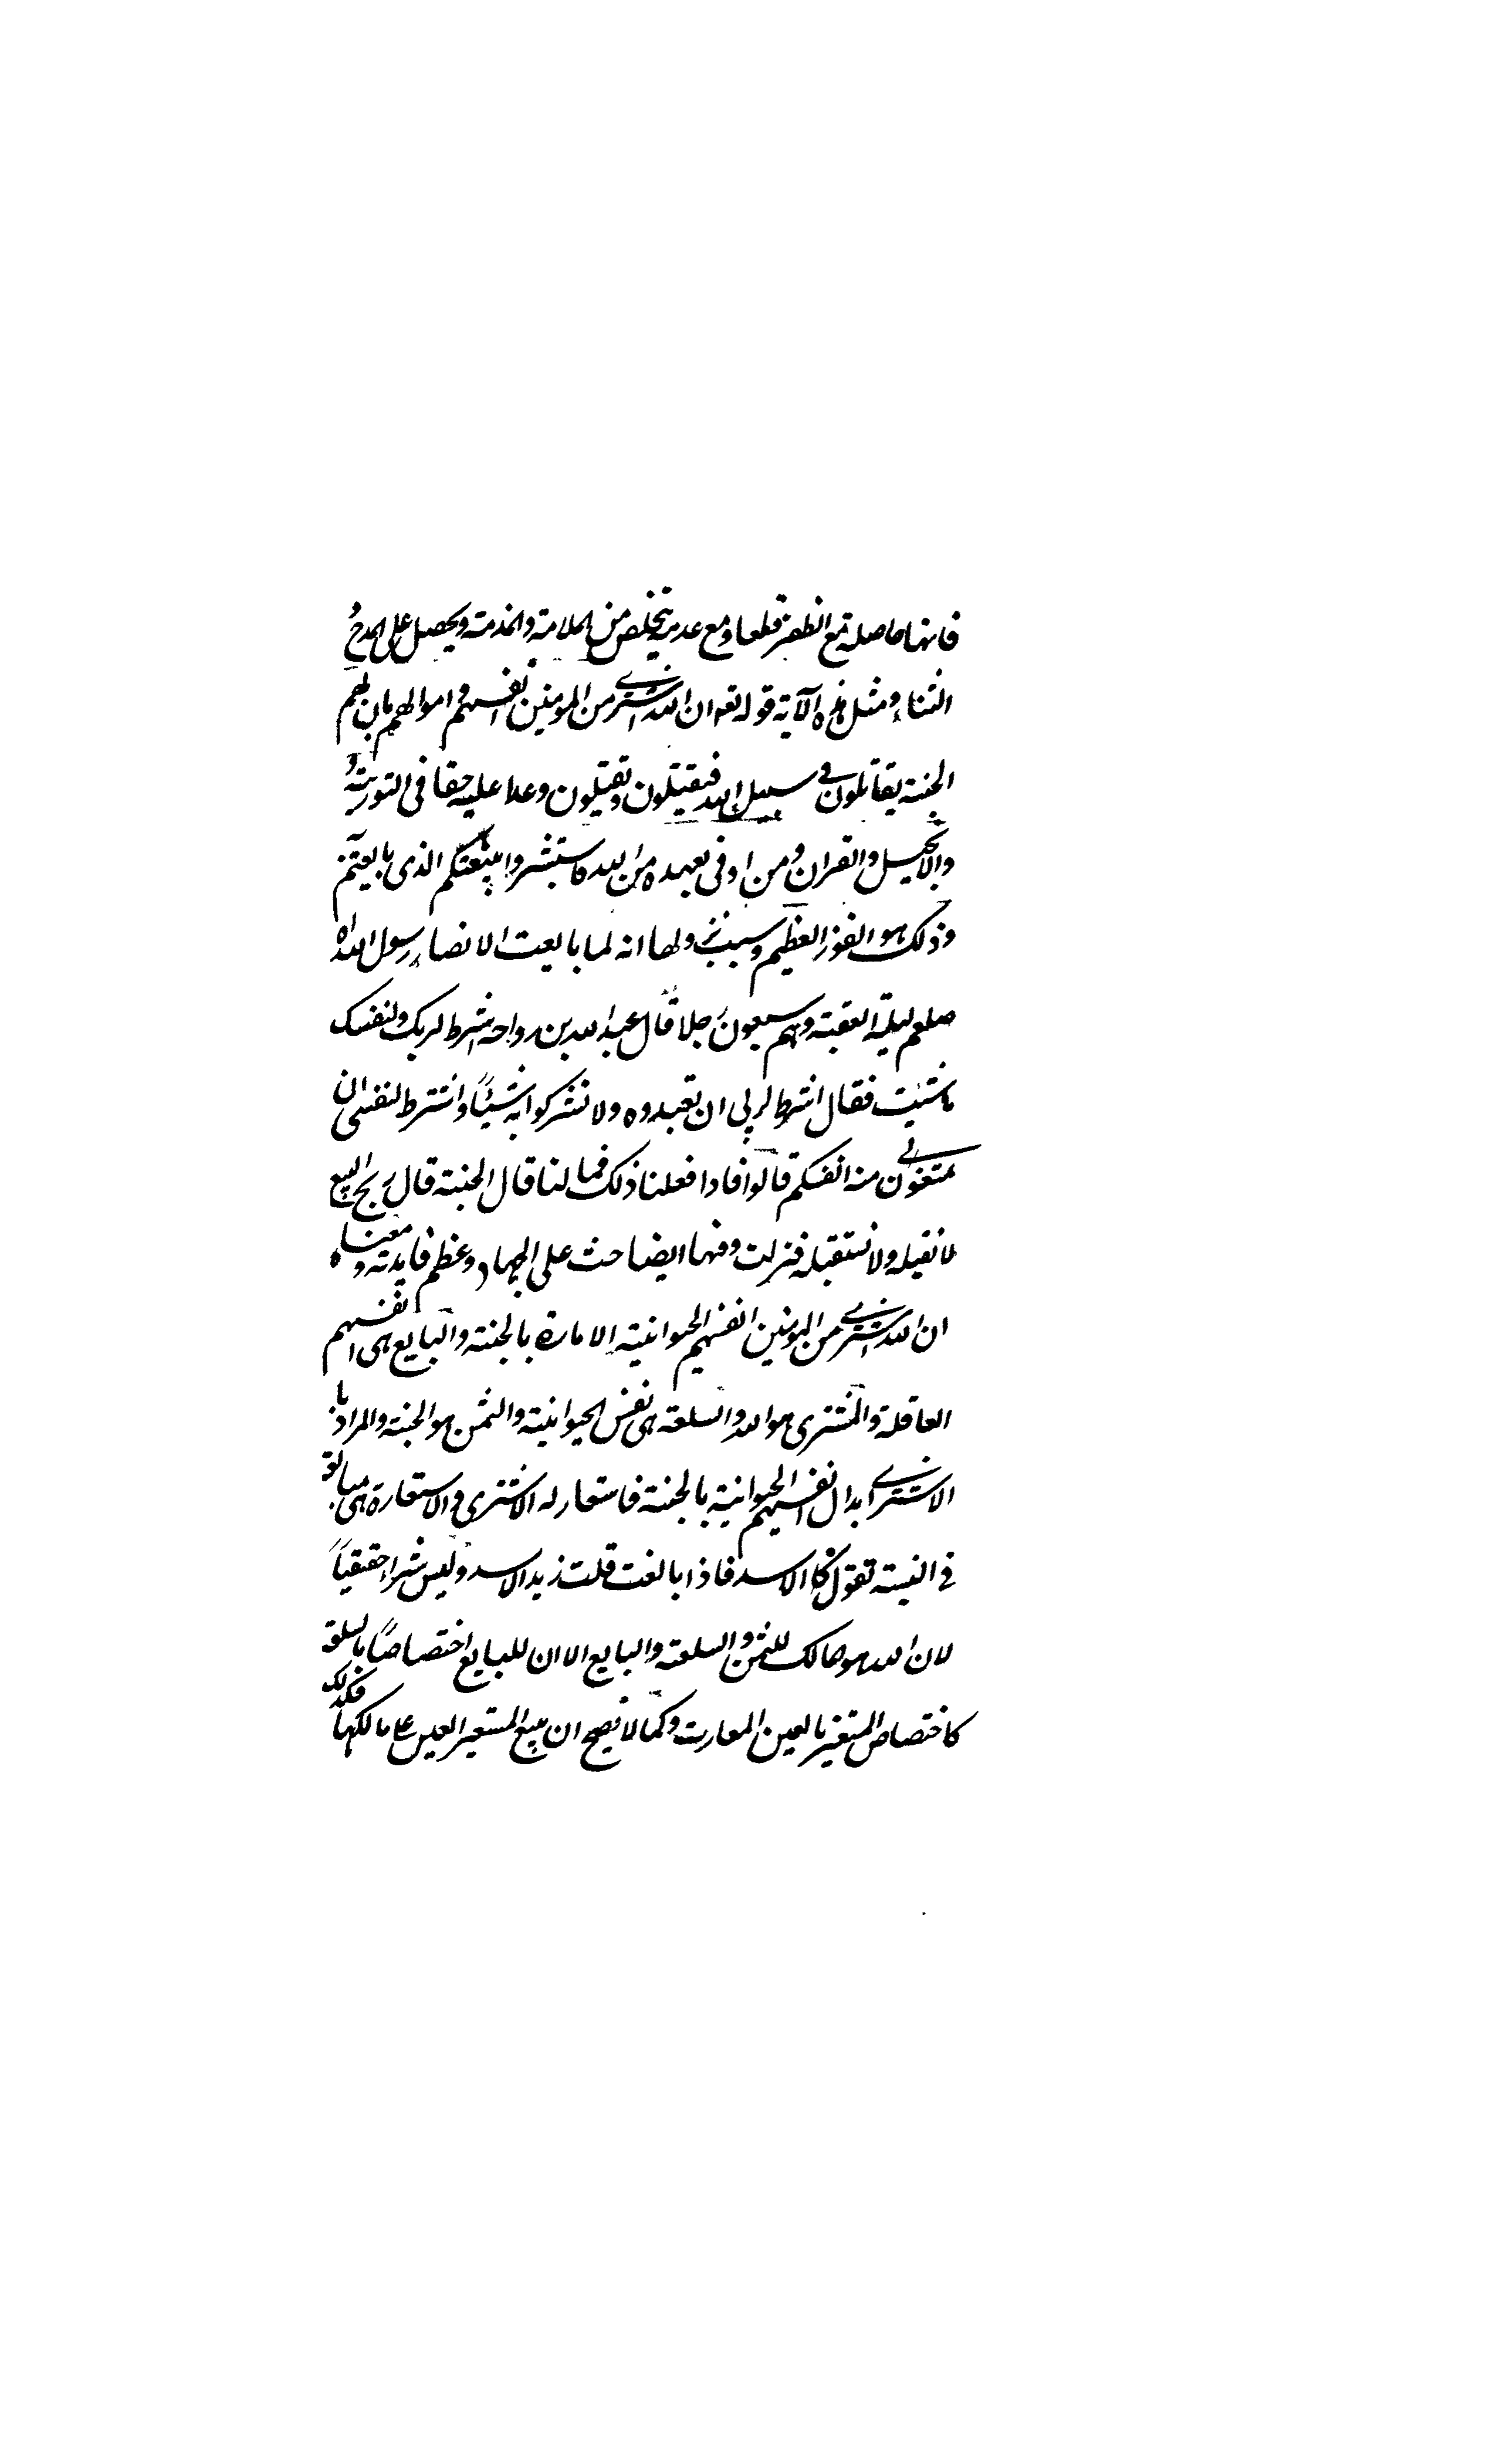 فانها حاصلة مع الظفر قطعا ومع عدمه يتخلص من الملامة والمذمة ويحصل على المدح و
الثناء ومثل هذه الآية قوله تعه ان الله اشترى من المومنين انفسهم و اموالهم بان لهم
الجنة يقاتلون في سبيل الله فيقتلون ويقتلون وعدا عليه حقا في التورية و
والانجيل والقران ومن اوفى بعهده من الله فاستبشروا ببيعكم الذى بايعتم به
وذلك هو الفوز العظيم وسبب نزولها انه لما بايعت الانصار رسول الله
صلعم ليلة العقبة وهم سبعون رجلا قال عبد الله بن رواحه اشرط لربك ولنفسك
ما شئت فقال اشرط لربي ان تعبدوه ولا تشركوا به شيئاً واشترط لنفسى ان
تمنعوني منه انفسكم قالوا فاذا فعلنا ذلك فما لنا قال الجنة قال ربح البيع
لا نقيله ولا نستقيله فنزلت وفيها ايضا حث على الجهاد وعظم فايدته ومعناه
ان الله اشترى من المومنين انفسهم الحيوانية الامارة بالجنة والبايع هى انفسهم
العاقلة والمشترى هو الله والسلعة هى نفس الحيوانية والثمن هو الجنة والمراد با
الاشترى ابدال انفسهم الحيوانية بالجنة فاستعار له الاشترى و الاستعارة هى مبالغة
في التشبيه تقول كالاسد فاذا بالغت قلت زيد الاسد وليس شراء حقيقياً
لان الله هو مالك للثمن و السلعة والبايع الا ان للبايع اختصاصاً بالسلعة
كاختصاص المستعير بالعين المعارت وكما لا يصح ان يبيع المستعير العين على مالكها فكذلك